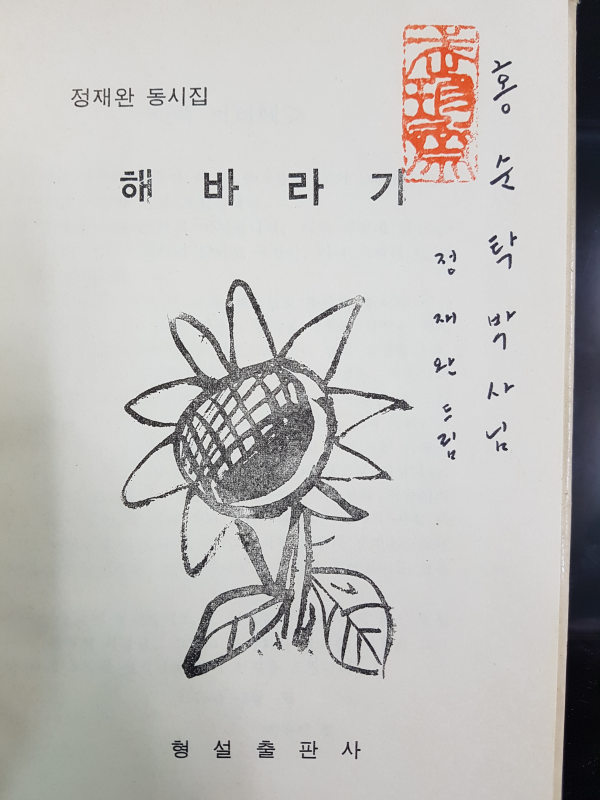 정재완 동시집
해바라기
홍순탁박사님
정재완드림
형설출판사